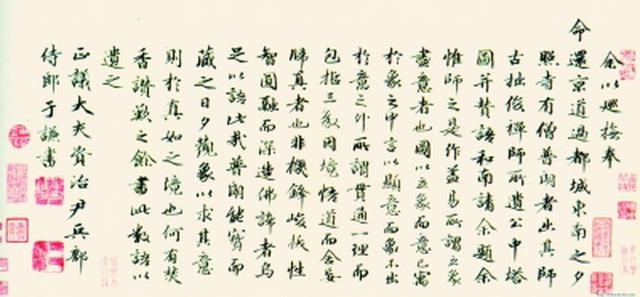 余以巡撫奉
命還京道過都城東南之夕
照寺有僧普朗者出其師
古拙俊禪師所遺公中塔
圖并賛語和南請余題余
惟師之是作葢易所謂立象
盡意者也圖以立象而意已寓
於象之中言以顯意而象不出
於意之外所謂貫通一理而
包括三教因境悟道而舍妄
歸真者也非機鋒峻拔性
智圓融而深造佛諦者烏
足以語此哉普朗能寳而
藏之日夕觀象以求其意
則於真如之境也何有焚
香讚歎之餘書此數語以
遺之
正議大夫資治尹兵部
侍郎于謙書